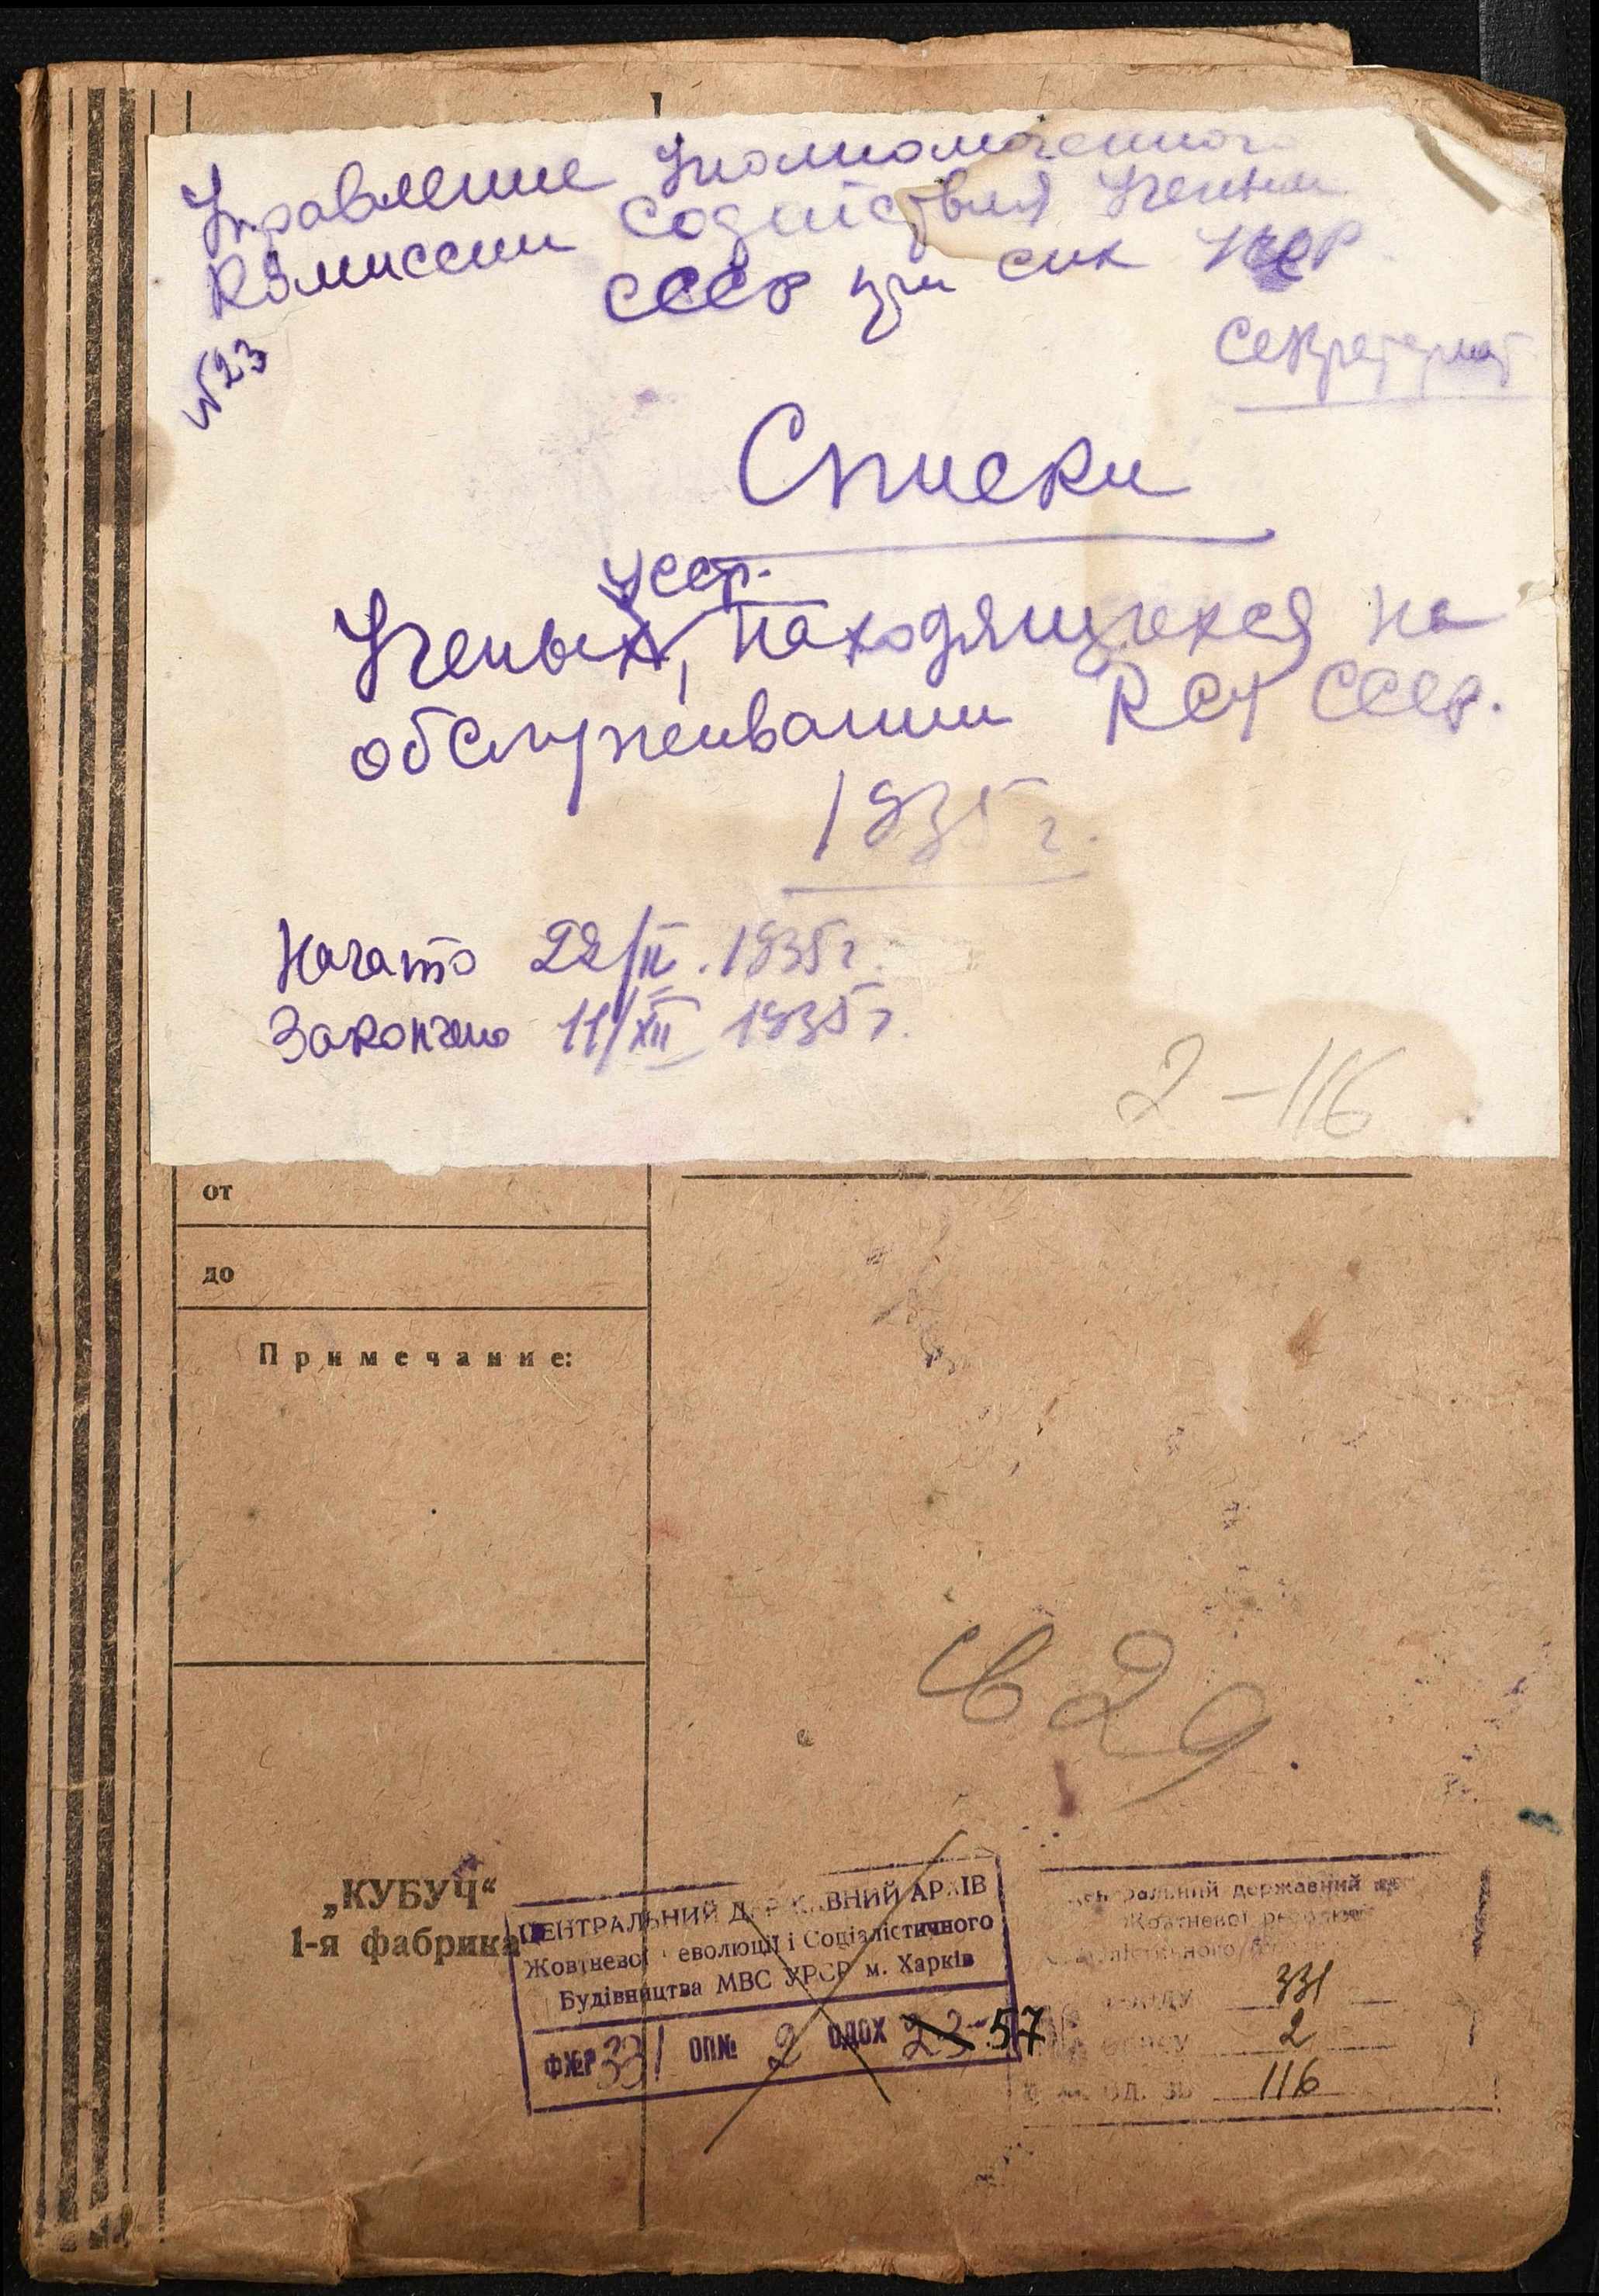 Управление Уполномоченного
Комиссии Содействия Ученым
СССР при СНК УССР
Секретариат
№23
Списки
УССР.
Ученых, находящихся на
обслуживании КСУ СССР.
1935 г.
Начато 22/II. 1935 г.
Закончено 11/XII 1935 г.
2-116
от
до
Примечание:
св 29
„КУБУЧ“
1-я фабрика
ЦЕНТРАЛЬНИЙ ДЕРЖАВНИЙ АРХІВ
Жовтневої революції і Соціалістичного
Будівництва МВС УРСР м. Харків
Ф№Р 331 ОП№ 2 ОДОХ 23 57
Центральний державний
Жовтневої революції
фонду 331
опису 2
од. зб. 116